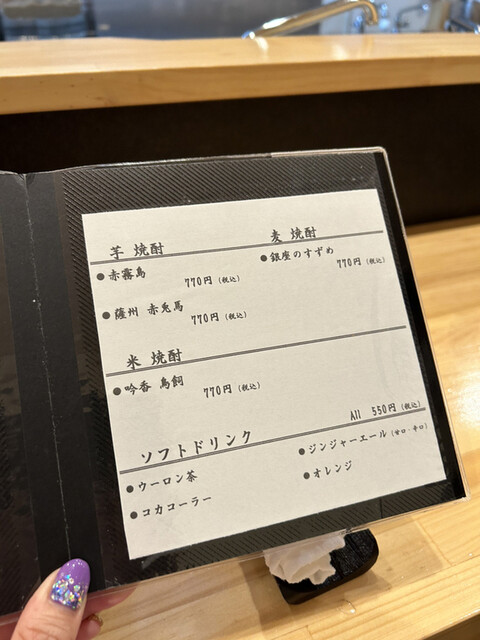 芋 焼酎
●赤霧島
770円（税込）
●薩州 赤兎馬
770円（税込）
麦 焼酎
●銀座のすずめ
770円（税込）
米 焼酎
●吟香 鳥飼
770円（税込）
ソフトドリンク
All 550円（税込）
●ウーロン茶
●コカコーラー
●ジンジャーエール（甘口・辛口）
●オレンジ